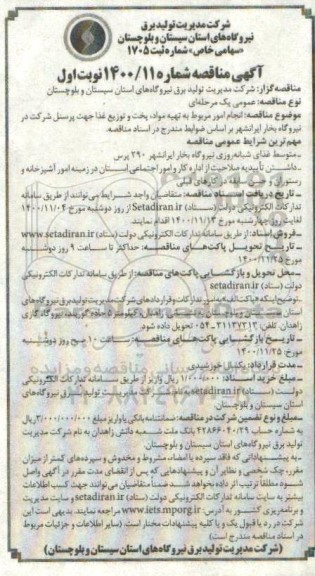 شرکت مدیریت تولید برق
نیروگاه‌های استان سیستان و بلوچستان
«سهامی خاص» شماره ثبت ۱۷۰۵
آگهی مناقصه شماره ۱۴۰۰/۱۱ نوبت اول
مناقصه‌گزار: شرکت مدیریت تولید برق نیروگاه‌های استان سیستان و بلوچستان
نوع مناقصه: عمومی یک مرحله‌ای
موضوع مناقصه: انجام امور مربوط به تهیه مواد، پخت و توزیع غذا جهت پرسنل شرکت در
نیروگاه بخار ایرانشهر بر اساس ضوابط مندرج در اسناد مناقصه.
مهم‌ترین شرایط عمومی مناقصه
ـ متوسط غذای شبانه‌روزی نیروگاه بخار ایرانشهر ۲۹۰ پرس
ـ داشتن تأییدیه صلاحیت از اداره کار و امور اجتماعی استان در زمینه امور آشپزخانه و
رستوران
ـ تاریخ دریافت اسناد مناقصه: متقاضیان واجد شرایط می‌توانند از طریق سامانه
تدارکات الکترونیکی دولت (ستاد) setadiran.ir از روز دوشنبه مورخ ۱۴۰۰/۱۱/۰۴
لغایت روز چهارشنبه مورخ ۱۴۰۰/۱۱/۱۳ اقدام نمایند.
ـ فروش اسناد: از طریق سامانه تدارکات الکترونیکی دولت (ستاد) www.setadiran.ir
ـ تاریخ تحویل پاکت‌های مناقصه: حداکثر تا ساعت ۹ روز دوشنبه
مورخ ۱۴۰۰/۱۱/۲۵
ـ محل تحویل و بازگشایی پاکت‌های مناقصه: از طریق سامانه تدارکات الکترونیکی
دولت (ستاد) setadiran.ir
ـ توضیح اینکه پاکت الف به امور تدارکات و قراردادهای شرکت مدیریت تولید برق نیروگاه‌های
استان سیستان و بلوچستان به نشانی زاهدان، کیلومتر ۵ جاده نیروگاه گازی
زاهدان تلفن: ۳۱۱۳۷۳۱۳-۰۵۴ تحویل داده شود.
ـ تاریخ بازگشایی پاکت‌های مناقصه: ساعت ۱۰ صبح روز دوشنبه
مورخ ۱۴۰۰/۱۱/۲۵
ـ مدت قرارداد: یکسال خورشیدی
ـ مبلغ خرید اسناد: ۱/۰۰۰/۰۰۰ ریال واریز از طریق سامانه تدارکات الکترونیکی
دولت (ستاد) setadiran.ir بنام شرکت مدیریت تولید برق نیروگاه‌های
استان سیستان و بلوچستان.
ـ مبلغ و نوع تضمین شرکت در مناقصه: ضمانتنامه بانکی یا واریز مبلغ ۳/۰۰۰/۰۰۰/۰۰۰ ریال
به شماره حساب ۴۲۸۶۶۰۴۰/۲۹ بانک ملت شعبه دانش زاهدان به نام شرکت مدیریت
تولید برق نیروگاه‌های استان سیستان و بلوچستان.
ـ به پیشنهاداتی که فاقد سپرده یا امضاء، مشروط و مخدوش و سپرده‌های کمتر از میزان
مقرر، چک شخصی و نظایر آن و پیشنهادهایی که پس از انقضای مدت مقرر در آگهی واصل
شود مطلقا ترتیب اثر داده نخواهد شد. ضمنا متقاضیان می‌توانند جهت کسب اطلاعات
بیشتر به سایت سامانه تدارکات الکترونیکی دولت (ستاد) setadiran.ir و سایت مدیریت
و برنامه‌ریزی کشور به آدرس: www.iets.mporg.ir مراجعه نمایند. بدیهی است این
شرکت در رد یا قبول یک و یا کلیه پیشنهادات مختار است. (سایر اطلاعات و جزئیات مربوط
در اسناد مناقصه مندرج است)
(شرکت مدیریت تولید برق نیروگاه‌های استان سیستان و بلوچستان)